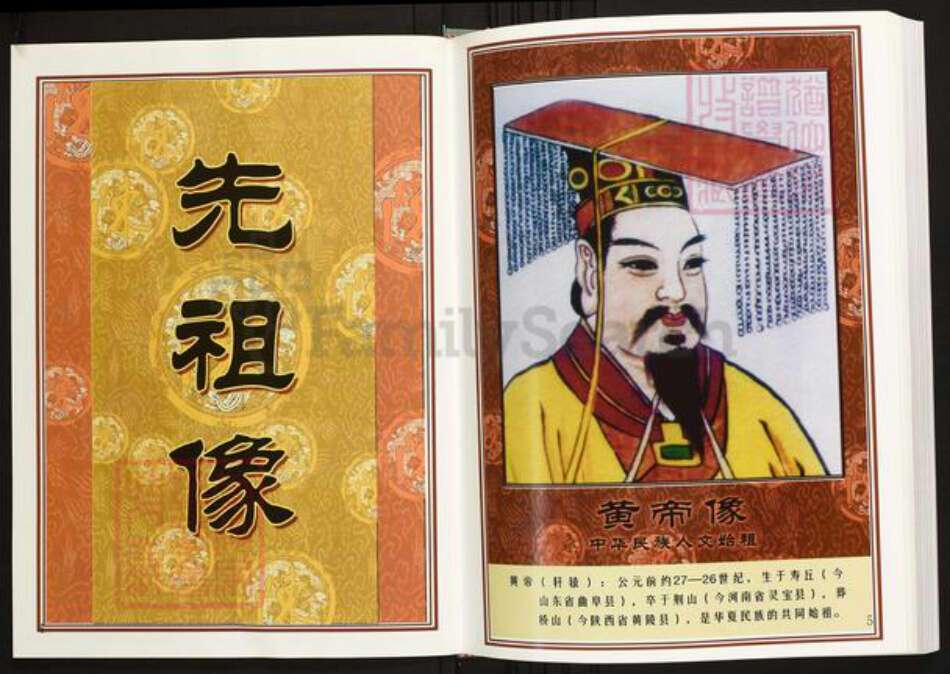 先祖像
黄帝像
中华民族人文始祖
黄帝（轩辕）：公元前约27—26世纪，生于寿丘（今
山东省曲阜县），卒于荆山（今河南省灵宝县），葬
桥山（今陕西省黄陵县），是华夏民族的共同始祖。
5
FamilySearch